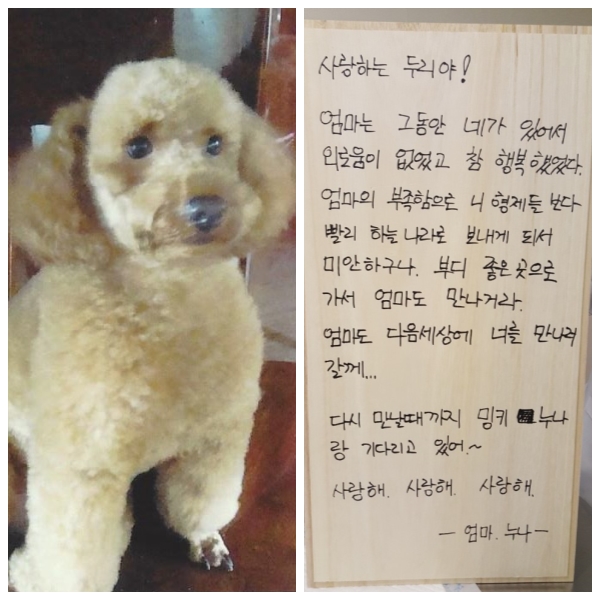 사랑하는 두리야!
엄마는 그동안 네가 있어서
외로움이 없었고 참 행복했었다.
엄마의 부족함으로 니 형제들 보다
빨리 하늘나라로 보내게 되서
미안하구나. 부디 좋은 곳으로
가서 엄마도 만나거라.
엄마도 다음세상에 너를 만나러
갈께...
다시 만날때까지 밍키 누나
랑 기다리고 있어.~
사랑해. 사랑해. 사랑해.
- 엄마. 누나 -